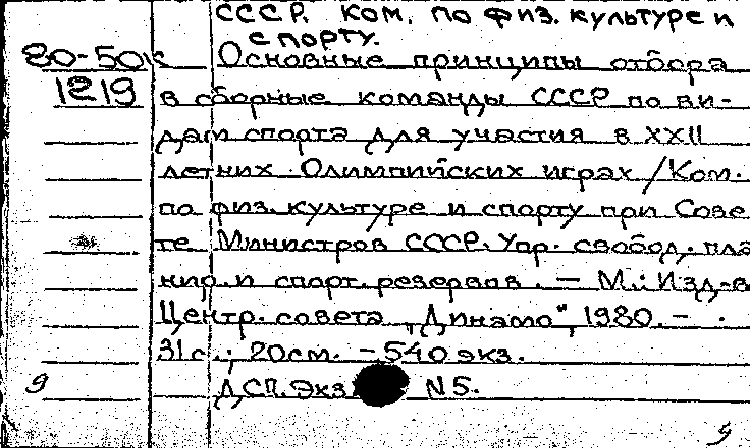 СССР. Ком. по физ. культуре и
спорту.
80-50к Основные принципы отбора
1219 в сборные команды СССР по ви-
дам спорта для участия в XXII
летних Олимпийских играх / Ком.
по физ. культуре и спорту при Сове
те Министров СССР. Упр. свобод. пла
нир. и спорт. резервов. — М.: Изд-в
Центр. совета „Динамо", 1980. -
31 с.; 20см. - 540 экз.
9 ДСП. Экз N5.